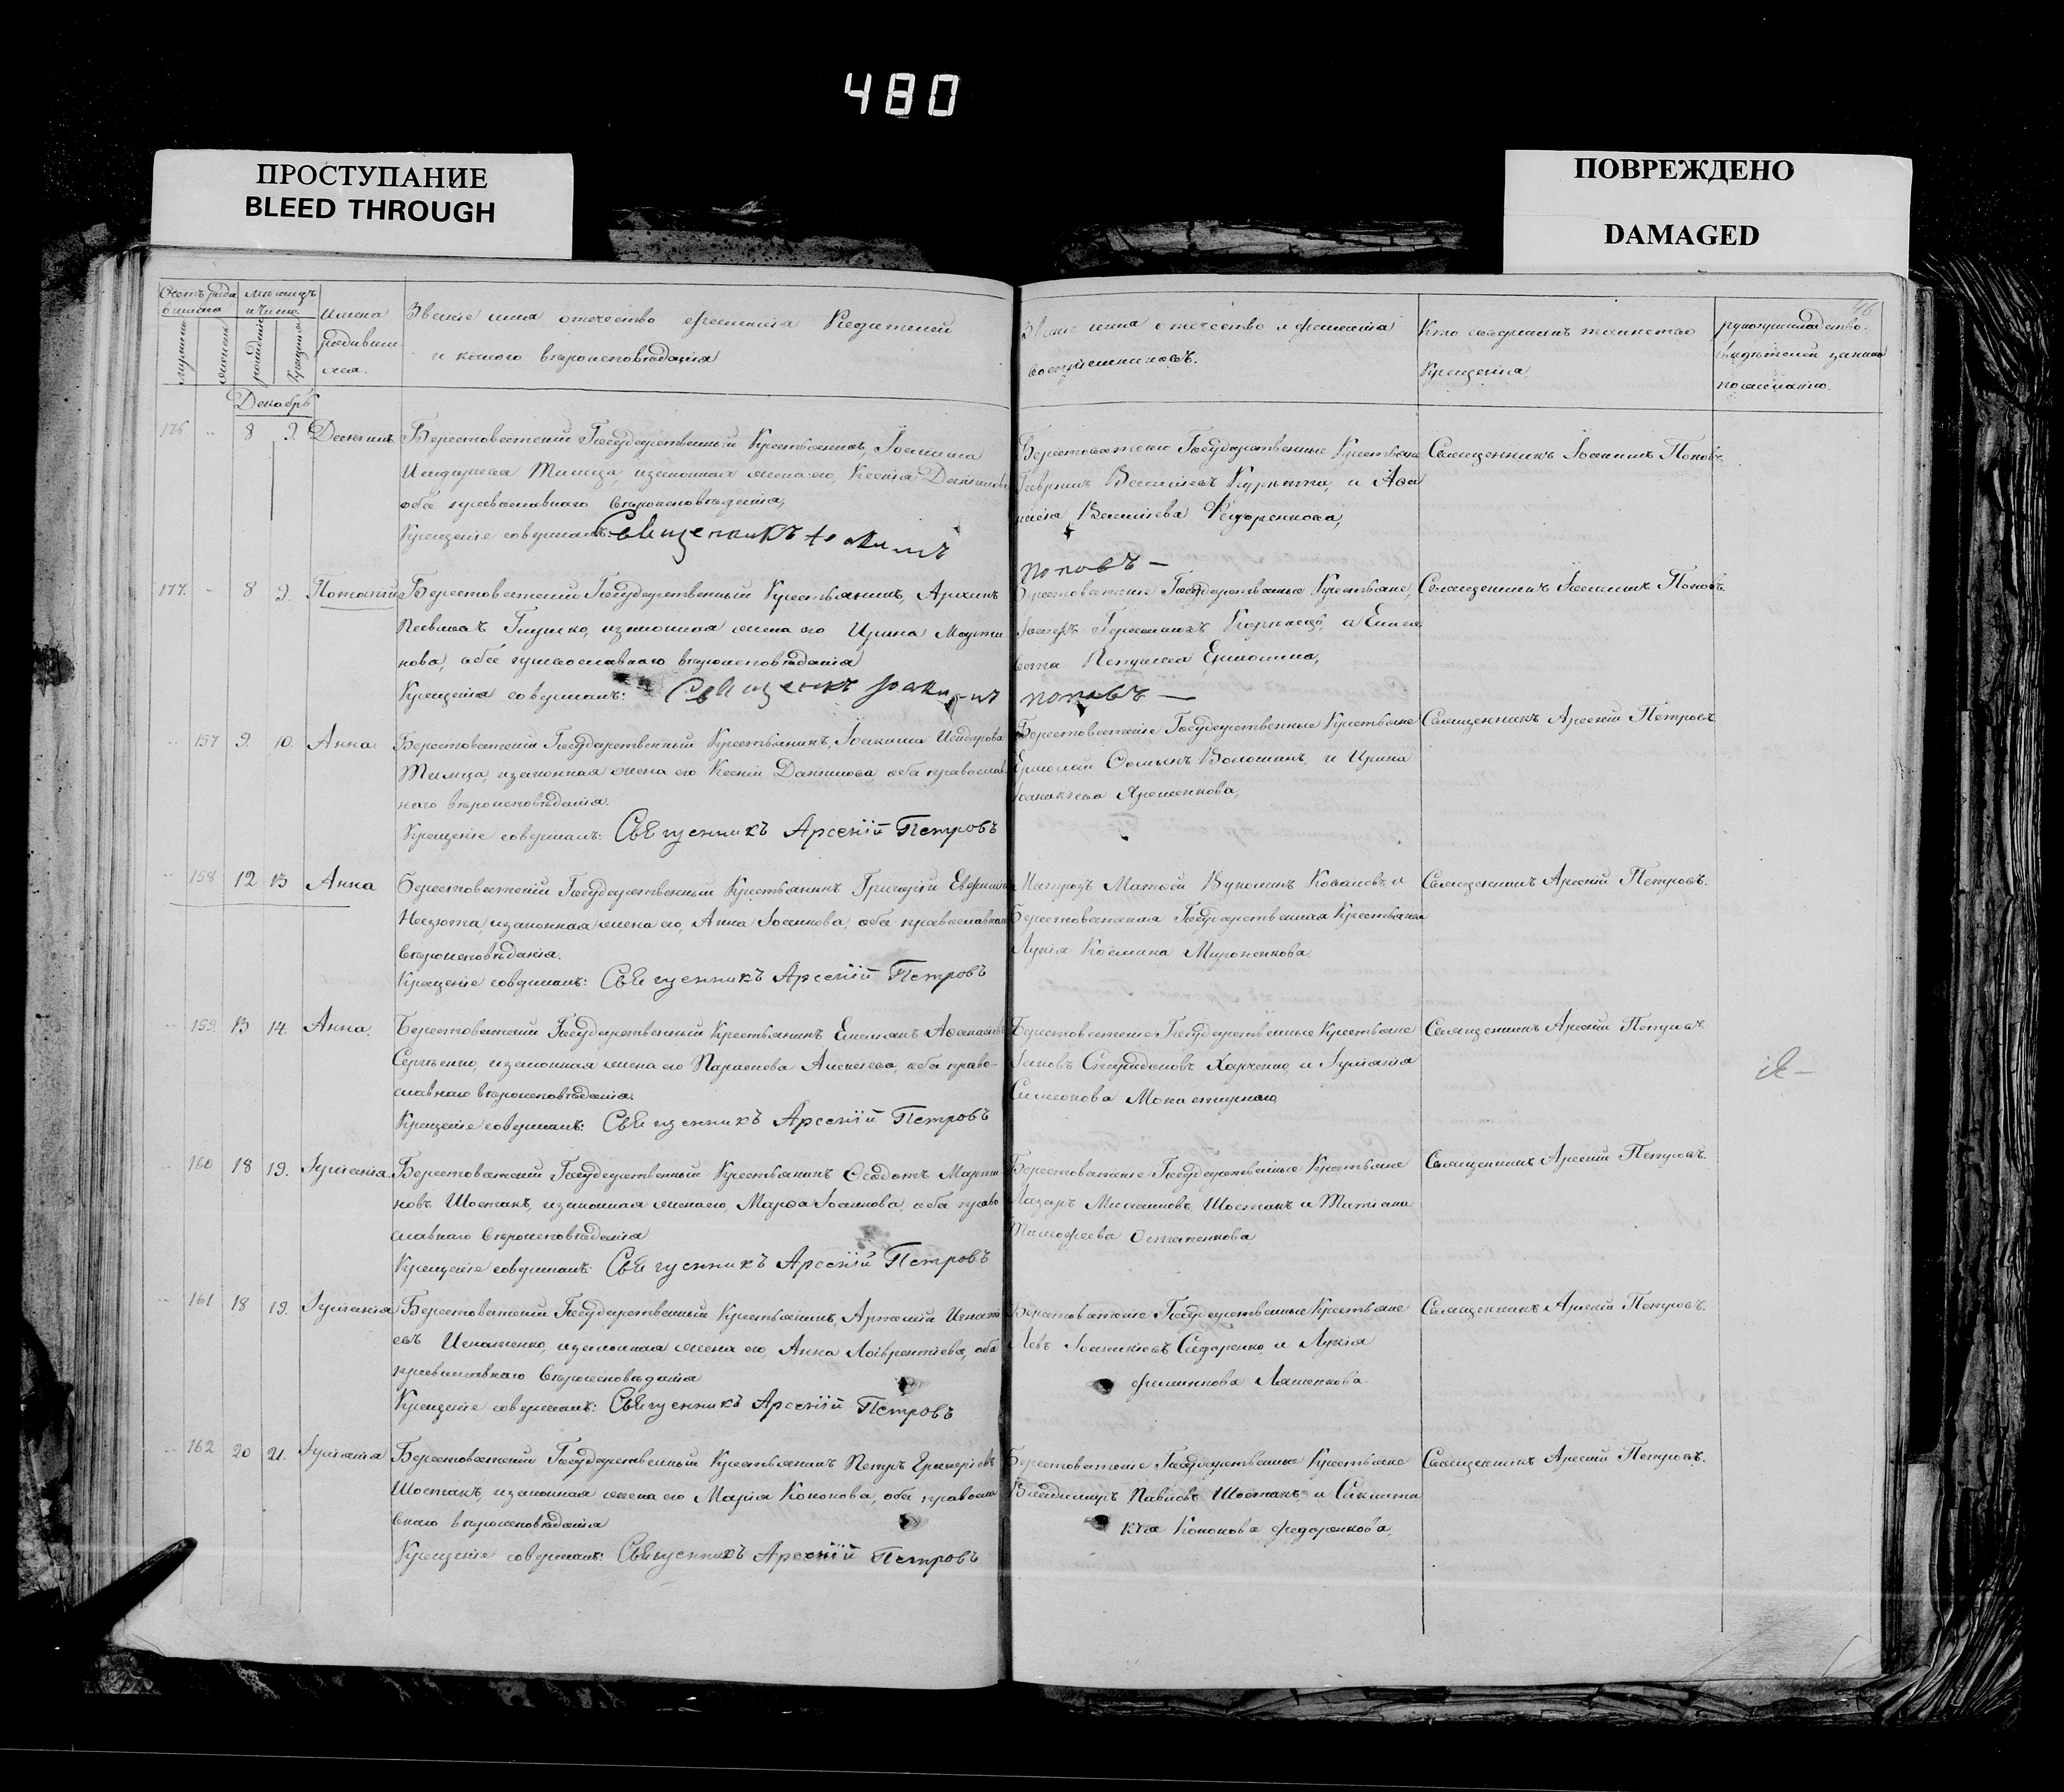 480
ПРОСТУПАНИЕ
BLEED THROUGH
ПОВРЕЖДЕНО
DAMAGED
46
Счетъ родившихся
мѣсяцъ и число
рожденія
крещенія
Имена родившихся.
Званіе имя отечество фамилія Родителей
и какого вѣроисповѣданія
Званіе имя отечество и фамилія
воспріемниковъ.
Кто совершалъ таинство
Крещенія.
рукоприкладство
свидѣтелей записи
по желанію.
Декабрь
176 8 9. Даніилъ
Берестоватскій Государственный Крестьянинъ, Іоакима
законная жена его, Ксенія Даніилова
оба православнаго вѣроисповѣданія,
Крещеніе совершалъ: Священникъ Іоакимъ
Государственные Крестьяне
Гавріилъ Василіевъ и
Василіева Федоренкова,
Поповъ —
Священникъ Іоакимъ Поповъ.
177. 8 9. Потапій
Берестоватскій Государственный Крестьянинъ, Архипъ
Павловъ Глушко, и законная жена его Ирина Марти
нова, оба православнаго вѣроисповѣданія
Крещенія совершалъ: Священикъ Іоакимъ
Берестоватскіе Государственные Крестьяне,
Іосифъ Герасимовъ и Елиса
вета Петрова
Поповъ —
Священникъ Іоакимъ Поповъ.
157 9. 10. Анна.
Берестоватскій Государственный Крестьянинъ, Іоакима Исидорова
законная жена его Ксенія Даніилова, оба православ
наго вѣроисповѣданія.
Крещеніе совершалъ: Священникъ Арсеній Петровъ
Берестоватскіе Государственные Крестьяне
Ермолай Волошинъ, и Ирина
Яременкова,
Священникъ Арсеній Петровъ
158 12 13 Анна
Берестоватскій Государственный Крестьянинъ Григорій
законная жена его, Анна Іоаннова, оба православнаго
вѣроисповѣданія.
Крещеніе совершалъ: Священникъ Арсеній Петровъ
Матвей Ковалевъ, и
Берестоватская Государственная Крестьянка
Лукія Космина Мироненкова.
Священникъ Арсеній Петровъ.
159. 13 14. Анна.
Берестоватскій Государственный Крестьянинъ Емельянъ
Сергѣенко, и законная жена его Параскева Алексѣева, оба право-
славнаго вѣроисповѣданія.
Крещеніе совершалъ: Священникъ Арсеній Петровъ
Берестоватскіе Государственные Крестьяне
Іаковъ Спиридоновъ Харченко и Іуліанія
Симеонова
Священникъ Арсеній Петровъ.
160 18 19. Іуліанія.
Берестоватскій Государственный Крестьянинъ Ѳеодотъ Марти
новъ Шостакъ, и законная жена его, Марѳа Іоаннова, оба право
славнаго вѣроисповѣданія
Крещеніе совершалъ: Священникъ Арсеній Петровъ
Берестоватскіе Государственные Крестьяне
Лазарь Шостакъ и Татіана
Тимофеева Остапенкова
Священникъ Арсеній Петровъ.
161 18 19. Іуліанія
Берестоватскій Государственный Крестьянинъ, Артемій Игнаті
евъ Игнатенко, и законная жена его, Анна Лаврентіева, оба
православнаго вѣроисповѣданія
Крещеніе совершалъ: Священникъ Арсеній Петровъ
Берестоватскіе Государственные Крестьяне
Левъ Сидоренко, и Лукія
Филиппова Ляшенкова.
Священникъ Арсеній Петровъ.
162 20 21. Іуліанія
Берестоватскій Государственный Крестьянинъ Петръ
Шостакъ, и законная жена его Марія Кононова, оба правосла
внаго вѣроисповѣданія
Крещеніе совершалъ: Священникъ Арсеній Петровъ
Берестоватскіе Государственные Крестьяне
Владимиръ Павловъ Шостакъ и
Кононова Федоренкова,
Священникъ Арсеній Петровъ.